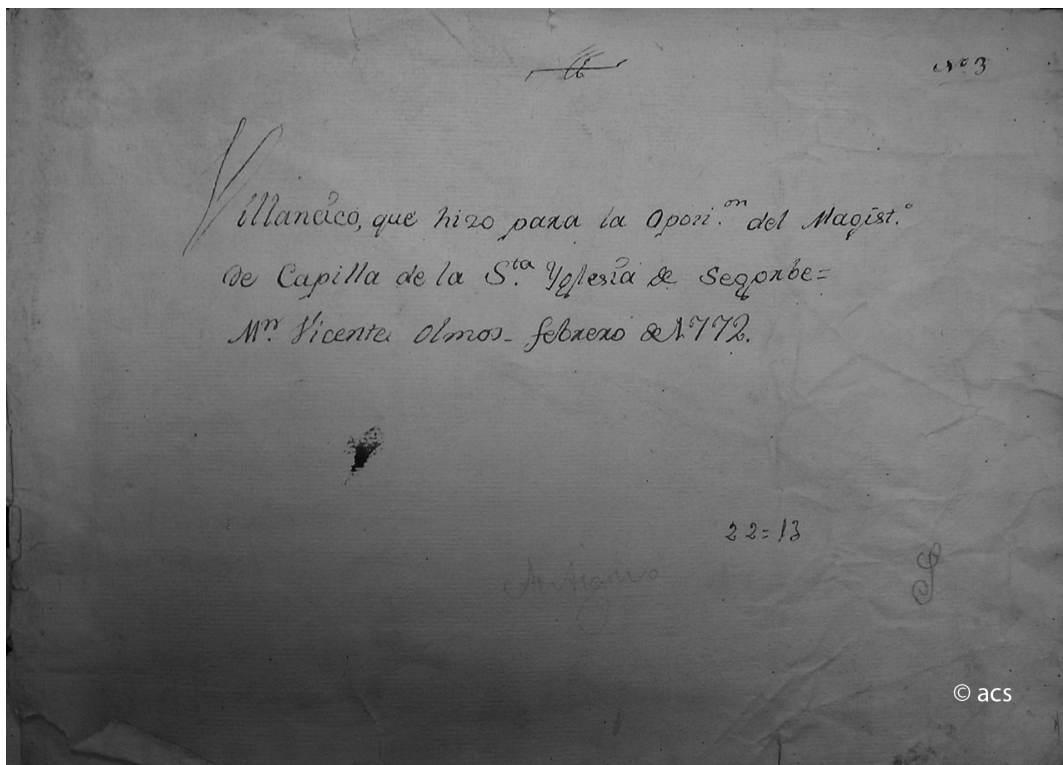 Nº 3
Villancico, que hizo para la Oposi.on del Magist.º
de Capilla de la S.ta Yglesia de Segorbe=
Mn. Vicente Olmos- febrero de 1772.
22=13
Antiguo
© acs